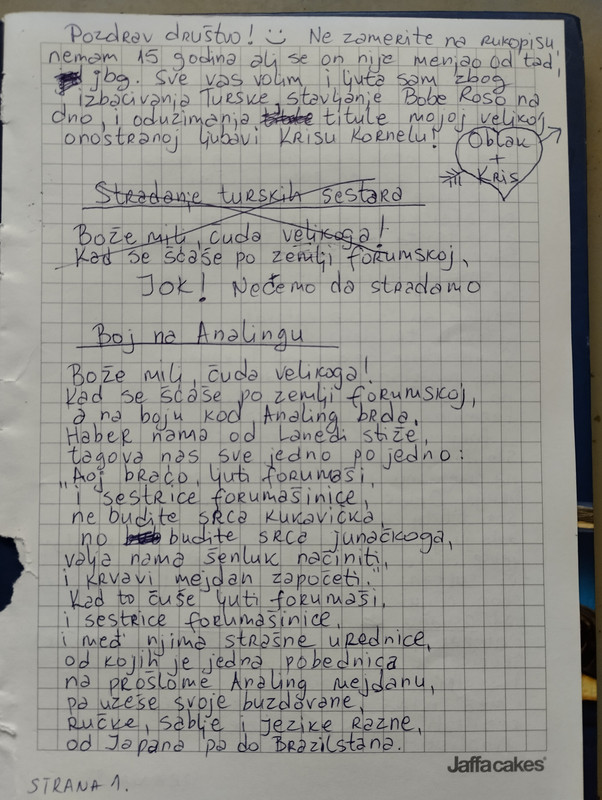 Pozdrav društvo! Ne zamerite na rukopisu,
nemam 15 godina ali se on nije menjao od tad,
jbg. Sve vas volim i ljuta sam zbog
izbacivanja Turske, stavljanje Bobe Roso na
dno, i oduzimanja titule mojoj velikoj
onostranoj ljubavi Krisu Kornelu!
Oblak
+
Kris
Stradanje turskih sestara
Bože mili, čuda velikoga!
Kad se šćaše po zemlji forumskoj,
Jok! Nećemo da stradamo
Boj na Analingu
Bože mili, čuda velikoga!
Kad se šćaše po zemlji forumskoj,
a na boju kod Analing brda,
Haber nama od Lanedi stiže,
tagova nas sve jedno po jedno:
"Aoj braćo, ljuti forumaši,
i sestrice forumašinice,
ne budite srca kukavička,
no budite srca junačkoga,
valja nama šenluk načiniti,
i krvavi mejdan započeti."
Kad to čuše ljuti forumaši,
i sestrice forumašinice,
i međ njima strašne urednice,
od kojih je jedna pobednica
na prošlome Analing mejdanu,
pa uzeše svoje buzdavane,
Ručke, sablje i jezike razne,
od Japana pa do Brazilstana.
Jaffacakes®
STRANA 1.